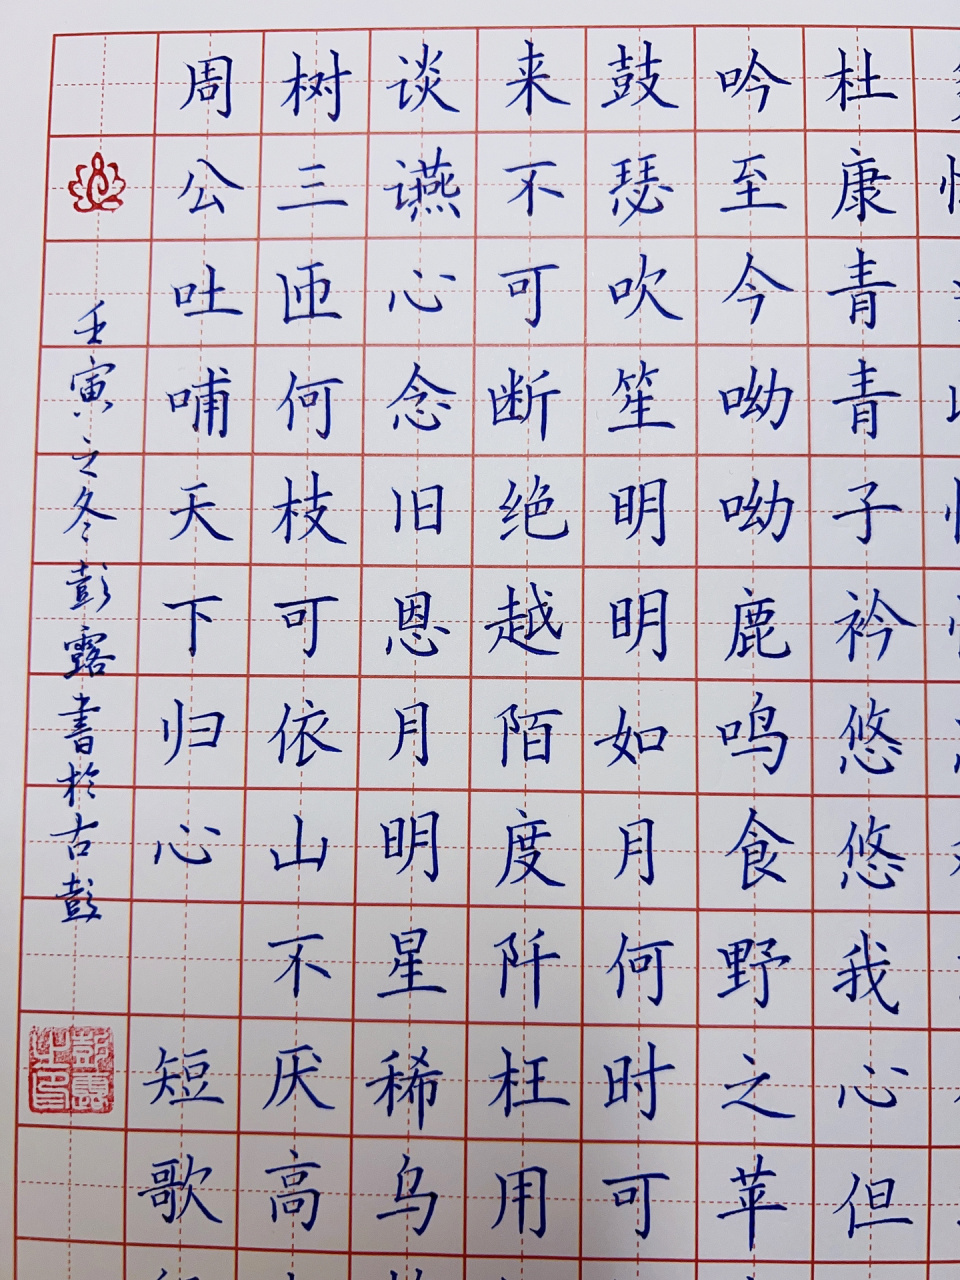 杜康青青子衿悠悠我心但
吟至今呦呦鹿鸣食野之苹
鼓瑟吹笙明明如月何时可
来不可断绝越陌度阡枉用
谈䜩心念旧恩月明星稀乌
树三匝何枝可依山不厌高
周公吐哺天下归心 短歌
壬寅之冬彭露書於古彭
彭露之印